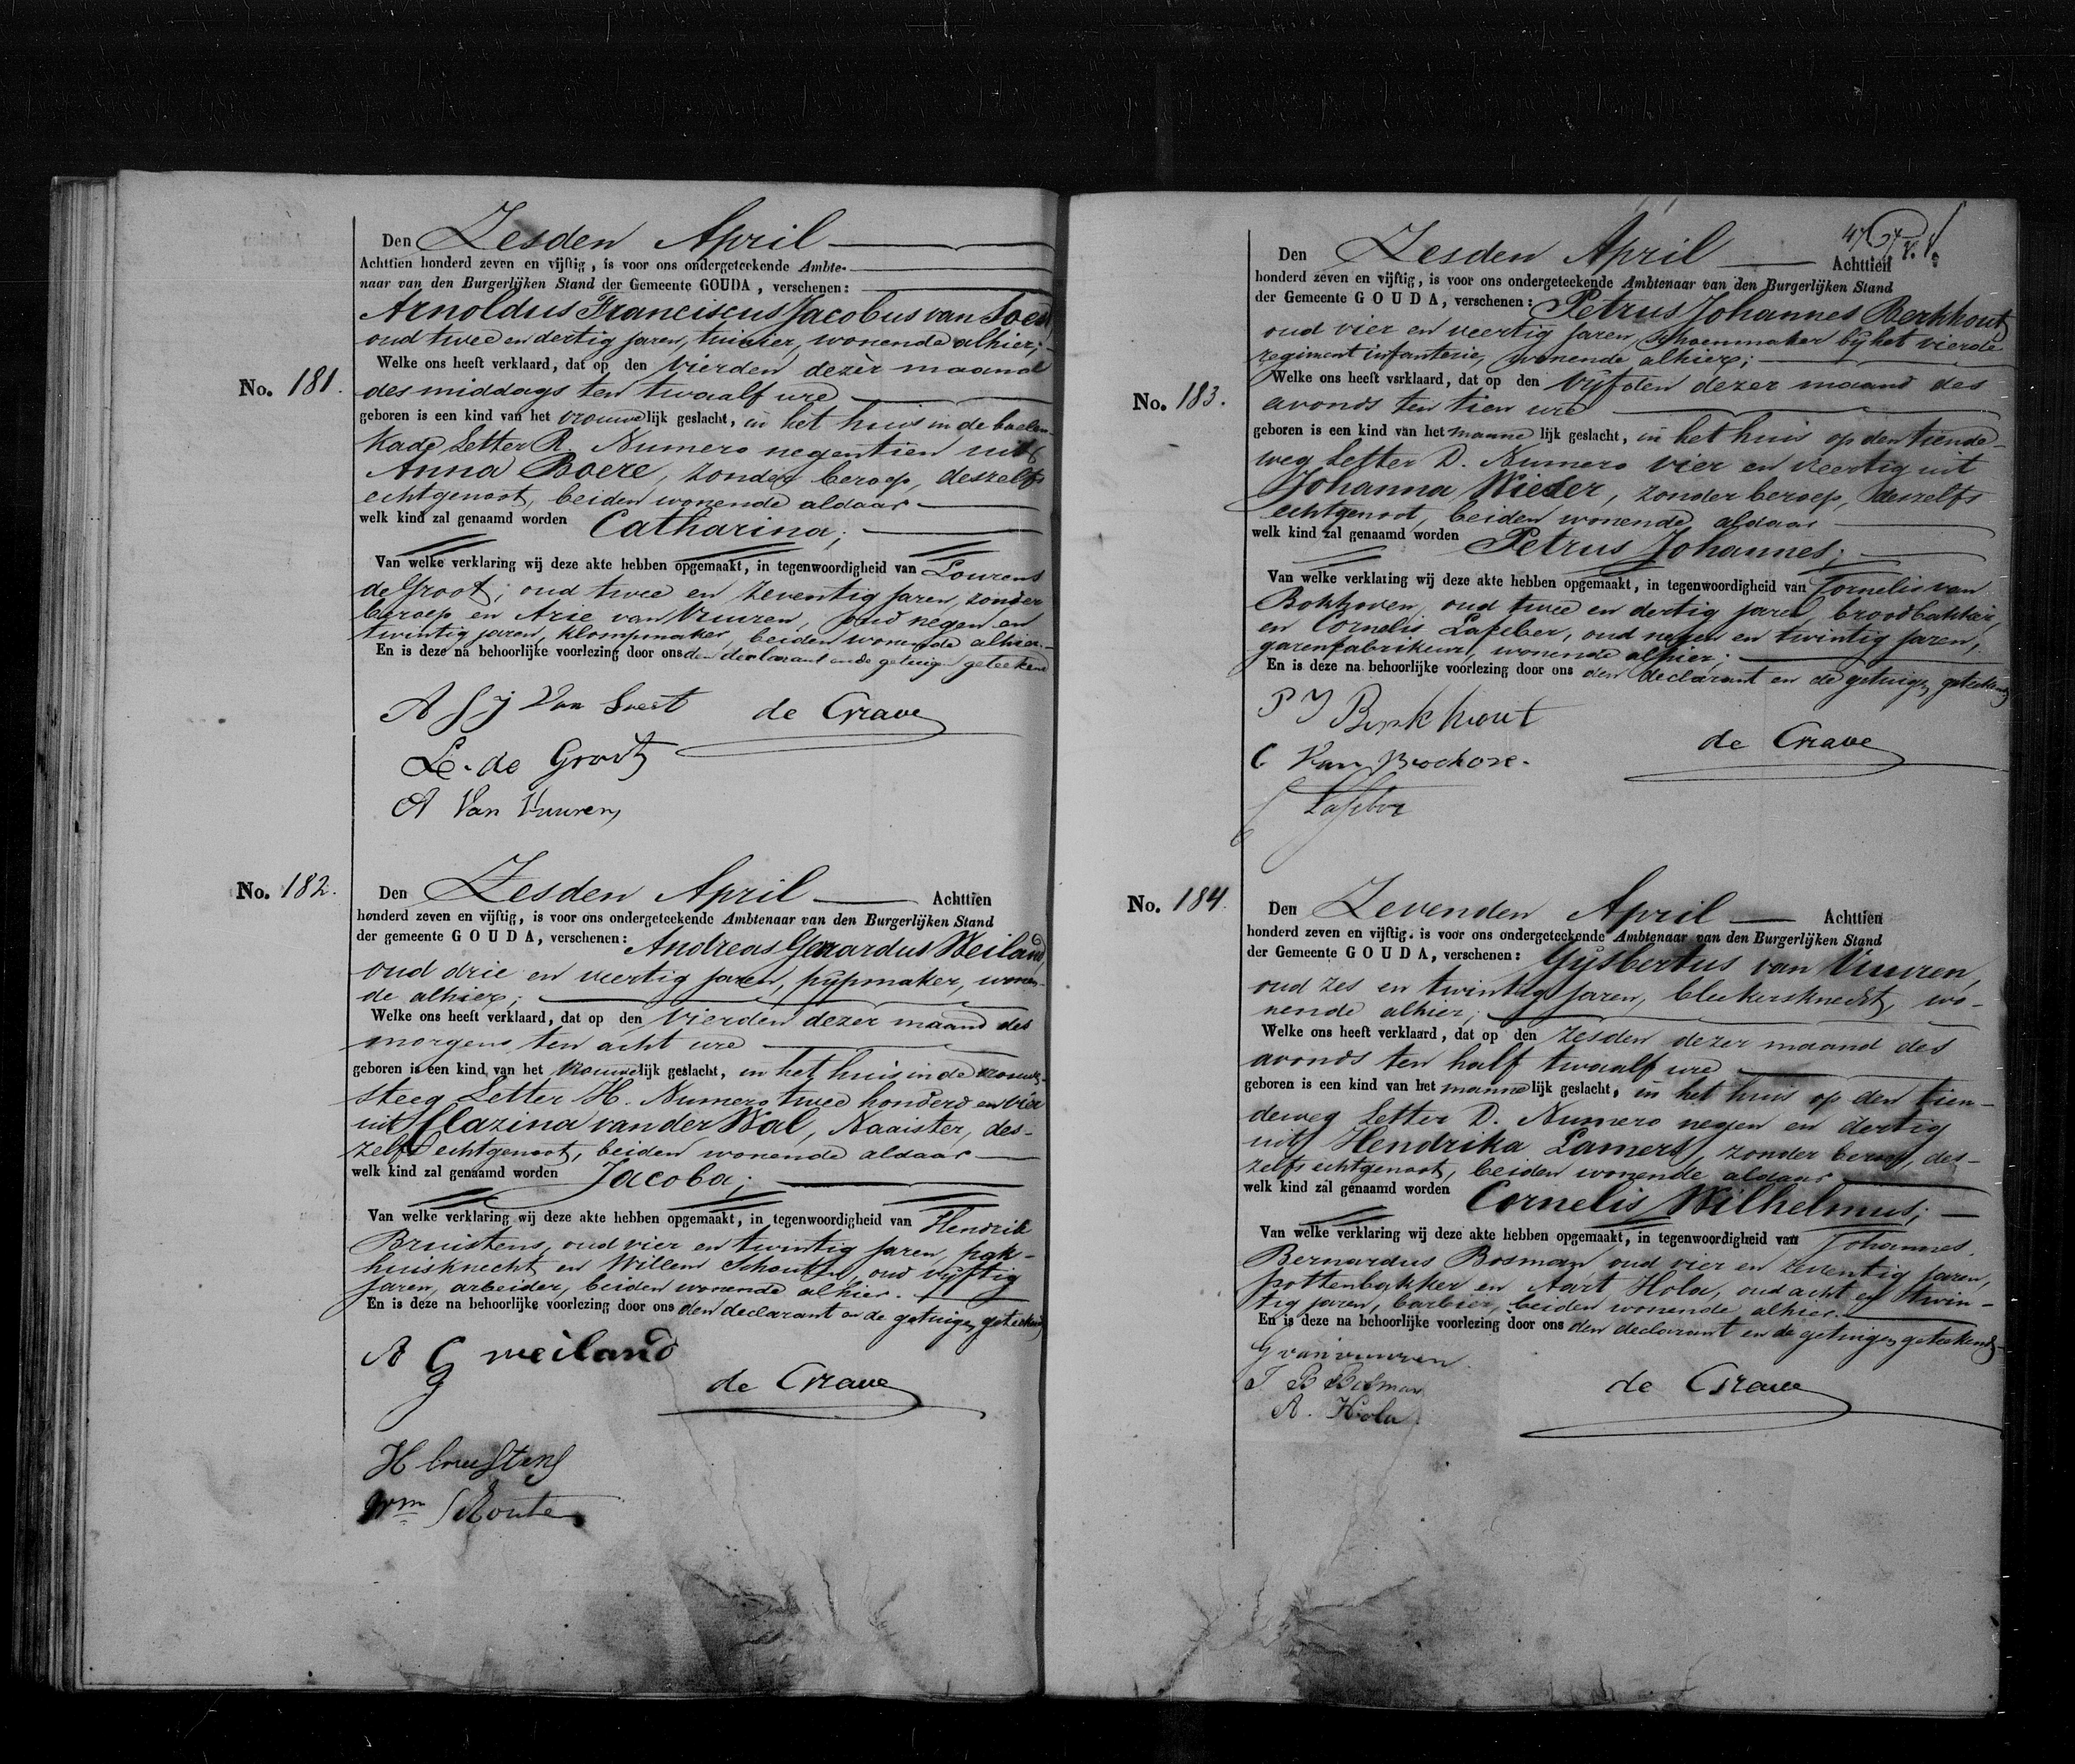 Den Zesden April
Achttien honderd zeven en vijftig, is voor ons ondergeteekende Ambte-
naar van den Burgerlijken Stand der Gemeente GOUDA, verschenen:
Arnoldus Franciscus Jacobus van Soest
oud twee en dertig jaren, tuinier, wonende alhier;
Welke ons heeft verklaard, dat op den vierden dezer maand
No. 181.
des middags ten twaalf ure
geboren is een kind van het vrouwelijk geslacht, in het huis in de
kade Letter R. Numero negentien uit
Anna Boere, zonder beroep, deszelfs
echtgenoot, beiden wonende aldaar
welk kind zal genaamd worden Catharina;
Van welke verklaring wij deze akte hebben opgemaakt, in tegenwoordigheid van Lourens
de Groot, oud twee en zeventig jaren, zonder
beroep en Arie van Vuuren, oud negen en
twintig jaren, klompmaker, beiden wonende alhier.
En is deze na behoorlijke voorlezing door ons den declarant en de getuigen geteekend
A F J Van Soest de Crave
Le. de Groot
A Van Vuuren
No. 182.
Den Zesden April Achttien
honderd zeven en vijftig, is voor ons ondergeteekende Ambtenaar van den Burgerlijken Stand
der gemeente GOUDA, verschenen: Andreas Gerardus Weiland
oud drie en veertig jaren, pijpmaker, wonen-
de alhier;
Welke ons heeft verklaard, dat op den vierden dezer maand des
morgens ten acht ure
geboren is een kind van het vrouwelijk geslacht, in het huis in de vrouwe-
steeg Letter H. Numero twee honderd en vier
uit Clazina van der Wal, Naaister, des-
zelfs echtgenoot, beiden wonende aldaar
welk kind zal genaamd worden Jacoba;
Van welke verklaring wij deze akte hebben opgemaakt, in tegenwoordigheid van Hendrik
Bruistens, oud vier en twintig jaren, pak-
huisknecht en Willem Schouten, oud vijftig
jaren, arbeider, beiden wonende alhier.
En is deze na behoorlijke voorlezing door ons den declarant en de getuigen geteekend
A G weiland
de Crave
H bruistens
Wm Schouten
Den Zesden April Achttien
honderd zeven en vijftig, is voor ons ondergeteekende Ambtenaar van den Burgerlijken Stand
der Gemeente GOUDA, verschenen: Petrus Johannes Berkhout,
oud vier en veertig jaren, schoenmaker bij het vierde
regiment infanterie, wonende alhier;
Welke ons heeft vsrklaard, dat op den vijfden dezer maand des
No. 183.
avonds ten tien ure
geboren is een kind van het mannelijk geslacht, in het huis op den tiende-
weg Letter D. Numero vier en veertig uit
Johanna Wieser, zonder beroep, deszelfs
echtgenoot, beiden wonende aldaar
welk kind zal genaamd worden Petrus Johannes;
Van welke verklaring wij deze akte hebben opgemaakt, in tegenwoordigheid van Cornelis van
Bokhoven, oud twee en dertig jaren, broodbakker,
en Cornelis Lafeber, oud negen en twintig jaren,
garenfabrikeur, wonende alhier;
En is deze na behoorlijke voorlezing door ons den declarant en de getuigen geteekend
P J Berkhout
de Crave
C Van
C Lafeber
No. 184.
Den Zevenden April Achttien
honderd zeven en vijftig, is voor ons ondergeteekende Ambtenaar van den Burgerlijken Stand
der Gemeente GOUDA, verschenen: Gijsbertus van Vuuren,
oud zes en twintig jaren, bleekersknecht, wo-
nende alhier;
Welke ons heeft verklaard, dat op den zesden dezer maand des
avonds ten half twaalf ure
geboren is een kind van het mannelijk geslacht, in het huis op den tien-
deweg Letter D. Numero negen en dertig
uit Hendrika Lamers, zonder beroep, des-
zelfs echtgenoot, beiden wonende aldaar
welk kind zal genaamd worden Cornelis Wilhelmus;
Van welke verklaring wij deze akte hebben opgemaakt, in tegenwoordigheid van Johannes
Bernardus Bosman oud vier en zeventig jaren,
pottenbakker en Aart Hola, oud acht en twin-
tig jaren, barbier, beiden wonende alhier.
En is deze na behoorlijke voorlezing door ons den declarant en de getuigen geteekend
G van vuuren
J B Bosman de Crave
A. Hola